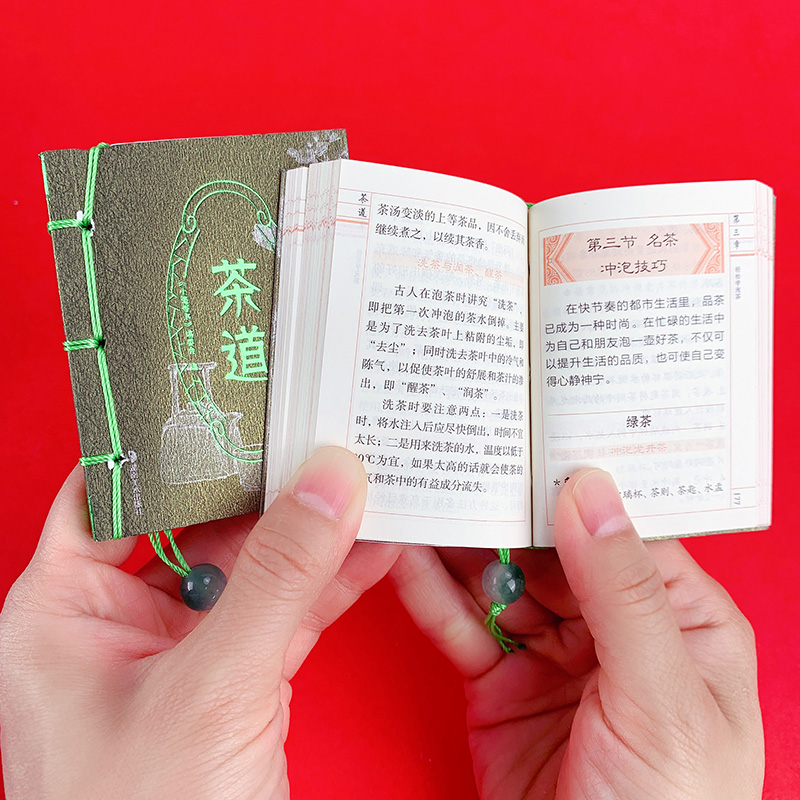 茶道
茶道
茶汤变淡的上等茶品，因不舍丢弃而
继续煮之，以续其茶香。
洗茶与润茶、醒茶
古人在泡茶时讲究“洗茶”，
即把第一次冲泡的茶水倒掉。主要
是为了洗去茶叶上粘附的尘垢，即
“去尘”；同时洗去茶叶中的冷气和
陈气，以促使茶叶的舒展和茶汁的浸
出，即“醒茶”、“润茶”。
洗茶时要注意两点：一是洗茶
时，将水注入后应尽快倒出，时间不宜
太长；二是用来洗茶的水，温度以低于
0℃为宜，如果太高的话就会使茶的
气和茶中的有益成分流失。
第三章
第三节 名茶
冲泡技巧
在快节奏的都市生活里，品茶
已成为一种时尚。在忙碌的生活中
为自己和朋友泡一壶好茶，不仅可
以提升生活的品质，也可使自己变
得心静神宁。
绿茶
冲泡龙井茶
*
璃杯、茶则、茶匙、水盂
177